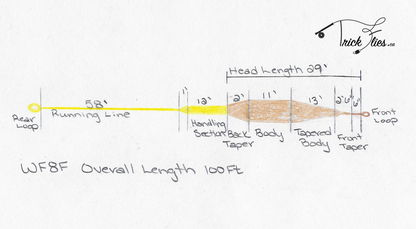 Trick Flies.com
Head Length 29'
58'
1'
12'
2'
11'
13'
2'
6"
6"
Rear Loop
Running Line
Handling Section
Back Taper
Body
Tapered Body
Front Taper
Front Loop
WF8F Overall Length 100Ft